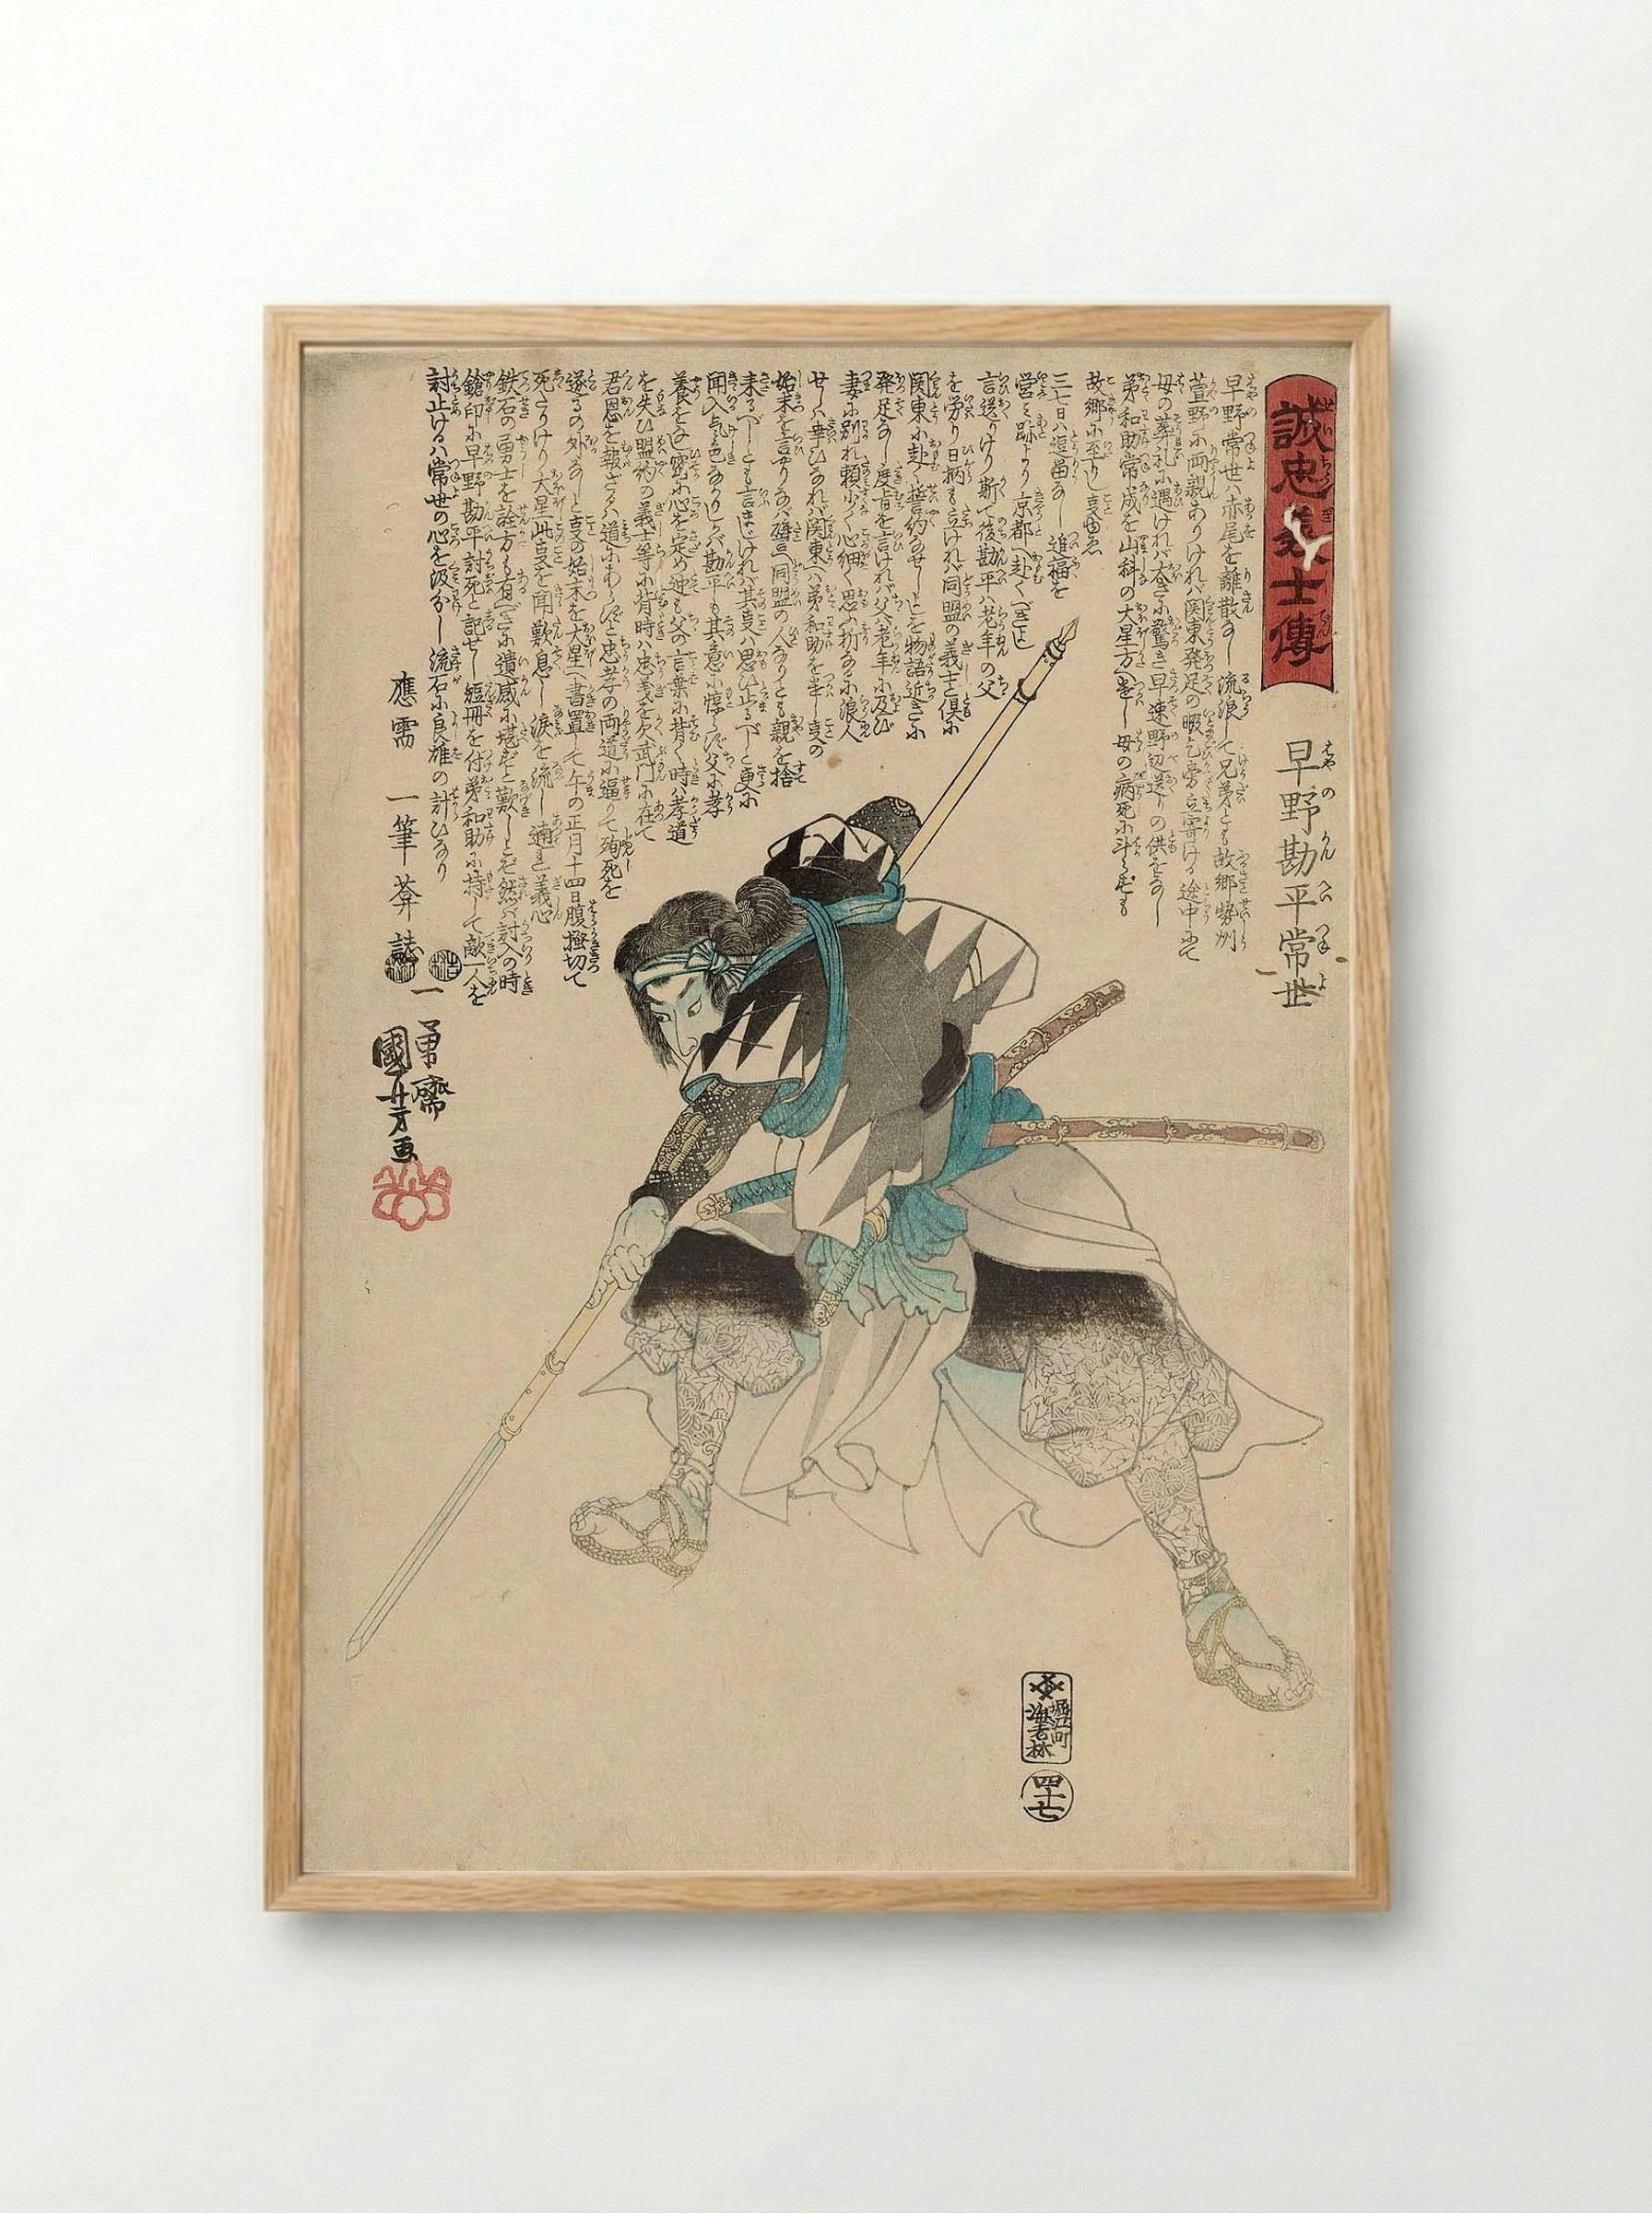 誠忠義士傳
早野勘平常世
早野常世ハ赤尾を離散なし流浪して兄弟とも故郷勢州
萱野に両親ありけれバ関東発足の暇乞旁立寄ける途中にて
母の葬礼に遇けれバ大きに驚き早速野辺送りの供をなし
弟和助常成を山科の大星方へ遣し母の病死に斗らずも
故郷に至りし支ゆゑ
三七日ハ逗留なし追福を
営ミ跡より京都へ赴くべきよし
言送りけり斯て後勘平ハ老年の父
を労り日柄も立けれバ同盟の義士と倶に
関東に赴く誓約なせしことを物語近きに
発足なし度旨を言けれバ父ハ老年に及び
妻に別れ頼少く心細く思ふ折なるに浪人
せしハ幸ひなれバ関東へハ弟和助を遣し支の
始末を言なバ譬同盟の人なりとも親を捨
来るべしとも言まじけれバ其支ハ思ひ止るべしと更に
聞入る気色なかりしバ勘平も其意に悖らず父に孝
養をなし密に心を定め迚も父の言葉に背く時ハ孝道
を失ひ盟約の義士等に背時ハ忠義を欠武門に在て
君恩を報ざるハ道にあらずと忠孝の両道に逼りて殉死を
遂るの外なしと支の始末を大星へ書置して午の正月十四日腹掻切て
死たりけり大星此支を聞歎息し涙を流し適れ義心
鉄石の勇士を詮方も有べきに遺感に堪ずと歎しとぞ然バ討入の時
鎗印に早野勘平討死と記せし短冊を付弟和助に持して敵一人を
討止けるハ常世の心を汲分し流石に良雄の計ひなり
應需 一筆菴誌
一勇齋
國芳画
堀江町
海老林
四十七